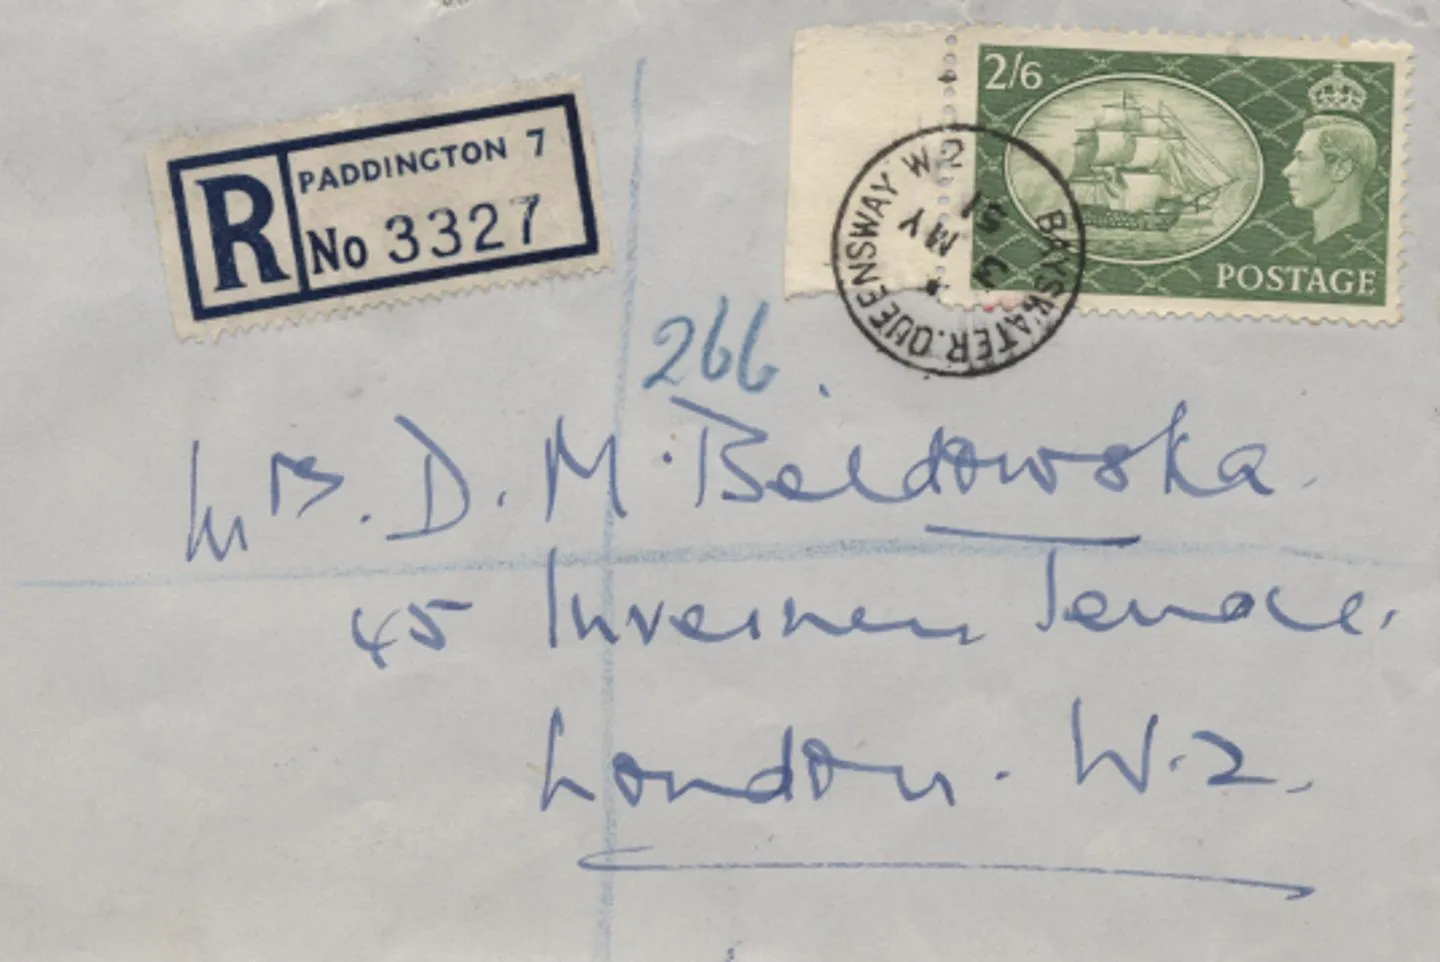 2/6
POSTAGE
R
PADDINGTON 7
No 3327
BAYSWATER. QUEENSWAY W.2
3 MY
51
266
Mrs. D. M. Beldowska.
45 Inverness Terrace.
London. W.2.